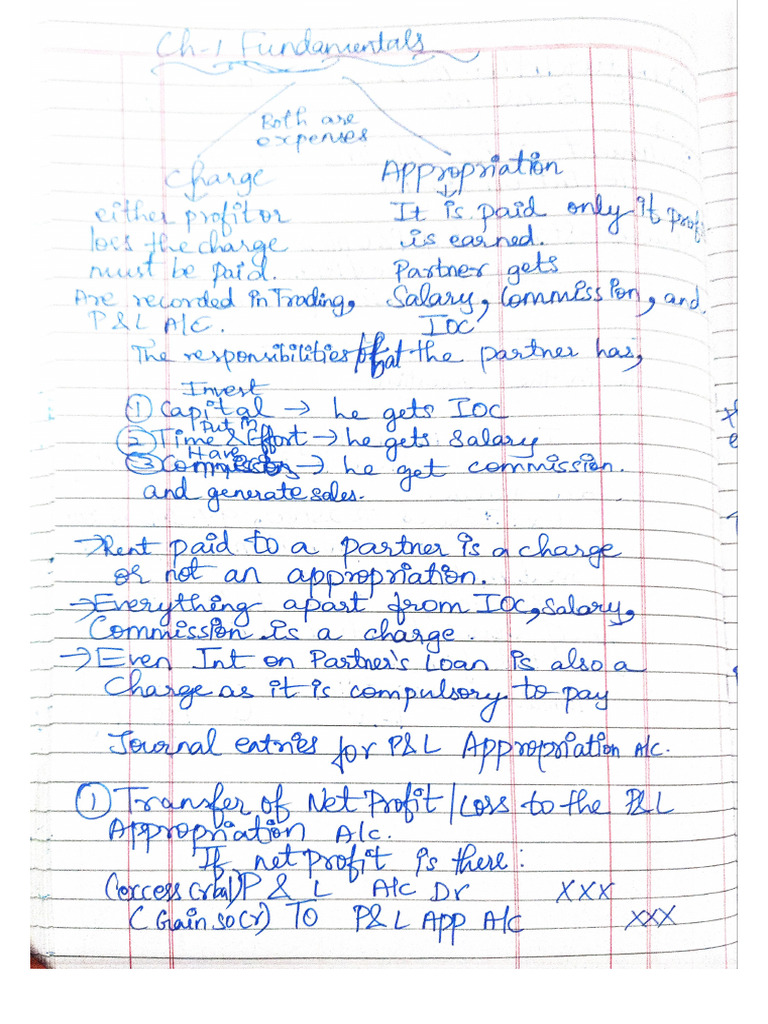 Ch-1 Fundamentals
Both are
expenses
Charge
Appropriation
either profit or
loss the charge
must be paid.
Are recorded in Trading,
P&L A/C.
It is paid only if prof
is earned.
Partner gets
Salary, Commission, and
IOC
The responsibilities that the partner has,
Invest
① Capital → he gets IOC
Put in
② Time & Effort → he gets Salary
Have
③ → he get commission.
and generate sales.
→ Rent paid to a partner is a charge
or not an appropriation.
→ Everything apart from IOC, Salary,
Commission is a charge.
→ Even Int on Partner's Loan is also a
Charge as it is compulsory to pay
Journal entries for P&L Appropriation A/c.
① Transfer of Net Profit/Loss to the P&L
Appropriation A/c.
If net profit is there:
(excess Cr bal) P & L A/C Dr XXX
(Gain so Cr) To P&L App A/C XXX